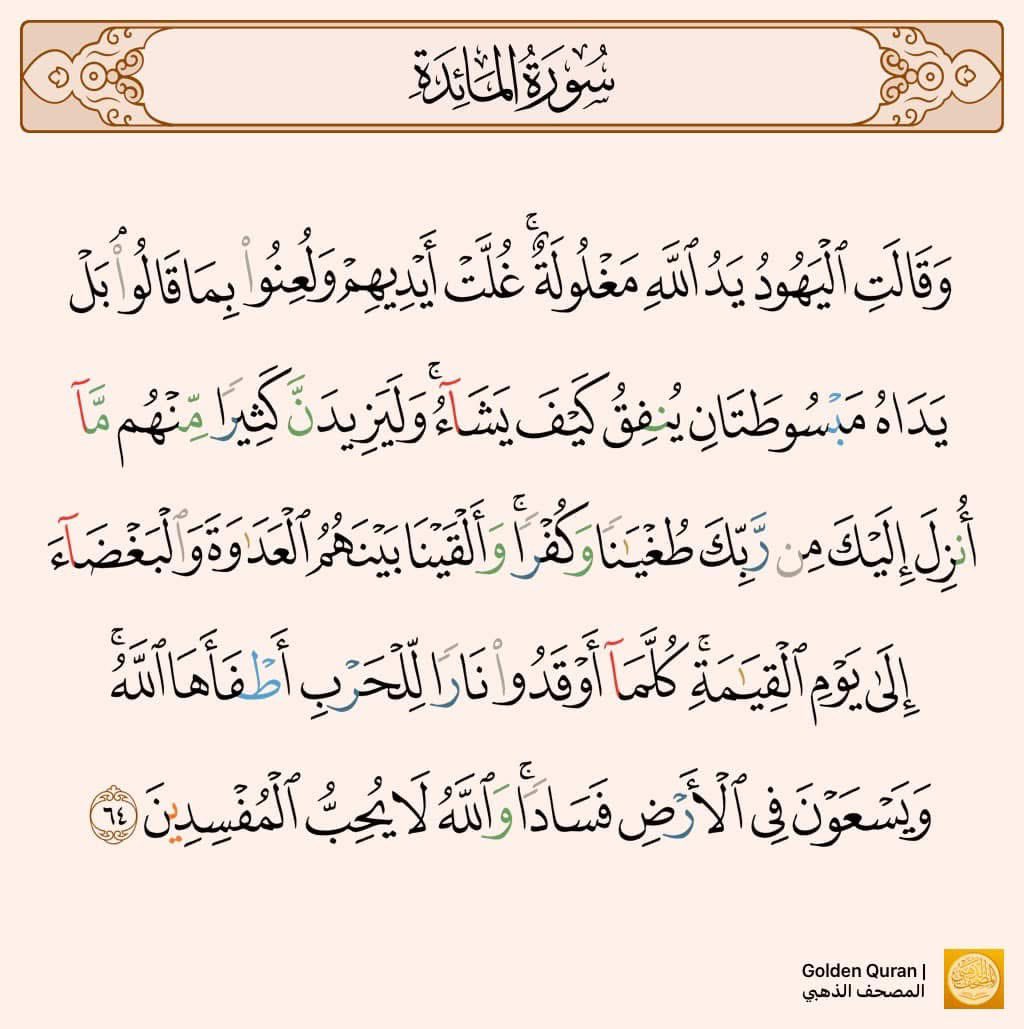 سُورَةُ المَائِدَةِ
وَقَالَتِ ٱلْيَهُودُ يَدُ ٱللَّهِ مَغْلُولَةٌ ۚ غُلَّتْ أَيْدِيهِمْ وَلُعِنُوا۟ بِمَا قَالُوا۟ ۘ بَلْ
يَدَاهُ مَبْسُوطَتَانِ يُنفِقُ كَيْفَ يَشَآءُ ۚ وَلَيَزِيدَنَّ كَثِيرًا مِّنْهُم مَّآ
أُنزِلَ إِلَيْكَ مِن رَّبِّكَ طُغْيَـٰنًا وَكُفْرًا ۚ وَأَلْقَيْنَا بَيْنَهُمُ ٱلْعَدَٰوَةَ وَٱلْبَغْضَآءَ
إِلَىٰ يَوْمِ ٱلْقِيَـٰمَةِ ۚ كُلَّمَآ أَوْقَدُوا۟ نَارًا لِّلْحَرْبِ أَطْفَأَهَا ٱللَّهُ ۚ
وَيَسْعَوْنَ فِى ٱلْأَرْضِ فَسَادًا ۚ وَٱللَّهُ لَا يُحِبُّ ٱلْمُفْسِدِينَ ٦٤
Golden Quran |
المصحف الذهبي